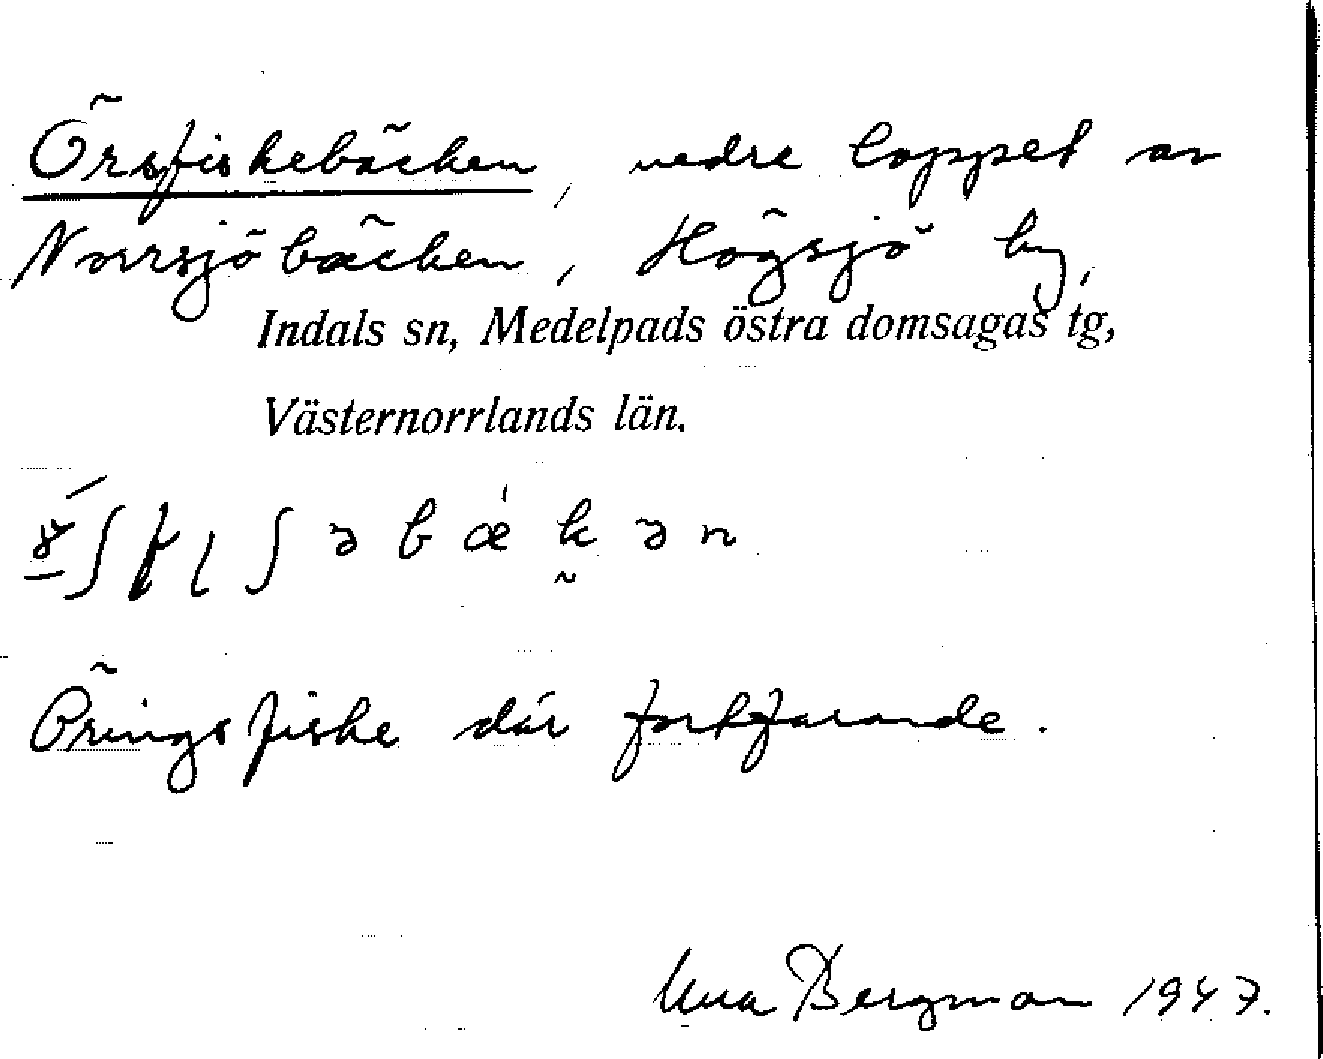 Örsfiskebäcken, nedre loppet av
Norrsjöbäcken, Högsjö by,
Indals sn, Medelpads östra domsagas tg,
Västernorrlands län.
Öringsfiske där fortfarande.
Bergman 1947.